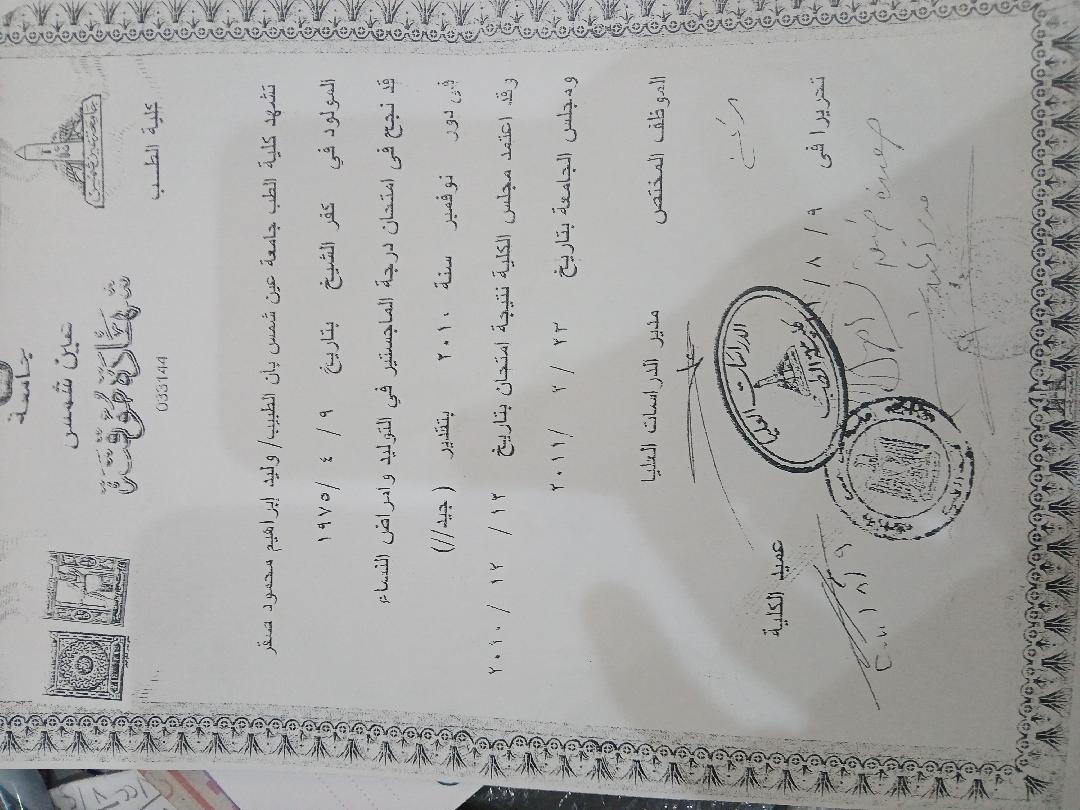 جامعة
عين شمس
كلية الطب
شهادة مؤقتة
033144
تشهد كلية الطب جامعة عين شمس بان الطبيب/ وليد إبراهيم محمود صقر
المولود في كفر الشيخ بتاريخ ٩ / ٤ /١٩٧٥
قد نجح فى امتحان درجة الماجستير في التوليد وامراض النساء
فى دور نوفمبر سنة ٢٠١٠ بتقدير (جيد//)
وقد اعتمد مجلس الكلية نتيجة امتحان بتاريخ ١٣/ ١٢ /٢٠١٠
ومجلس الجامعة بتاريخ ٢٣ /٢ /٢٠١١
الموظف المختص مدير الدراسات العليا عميد الكلية
تحريرا فى ٩ / ٨ /
الدراسات العليا